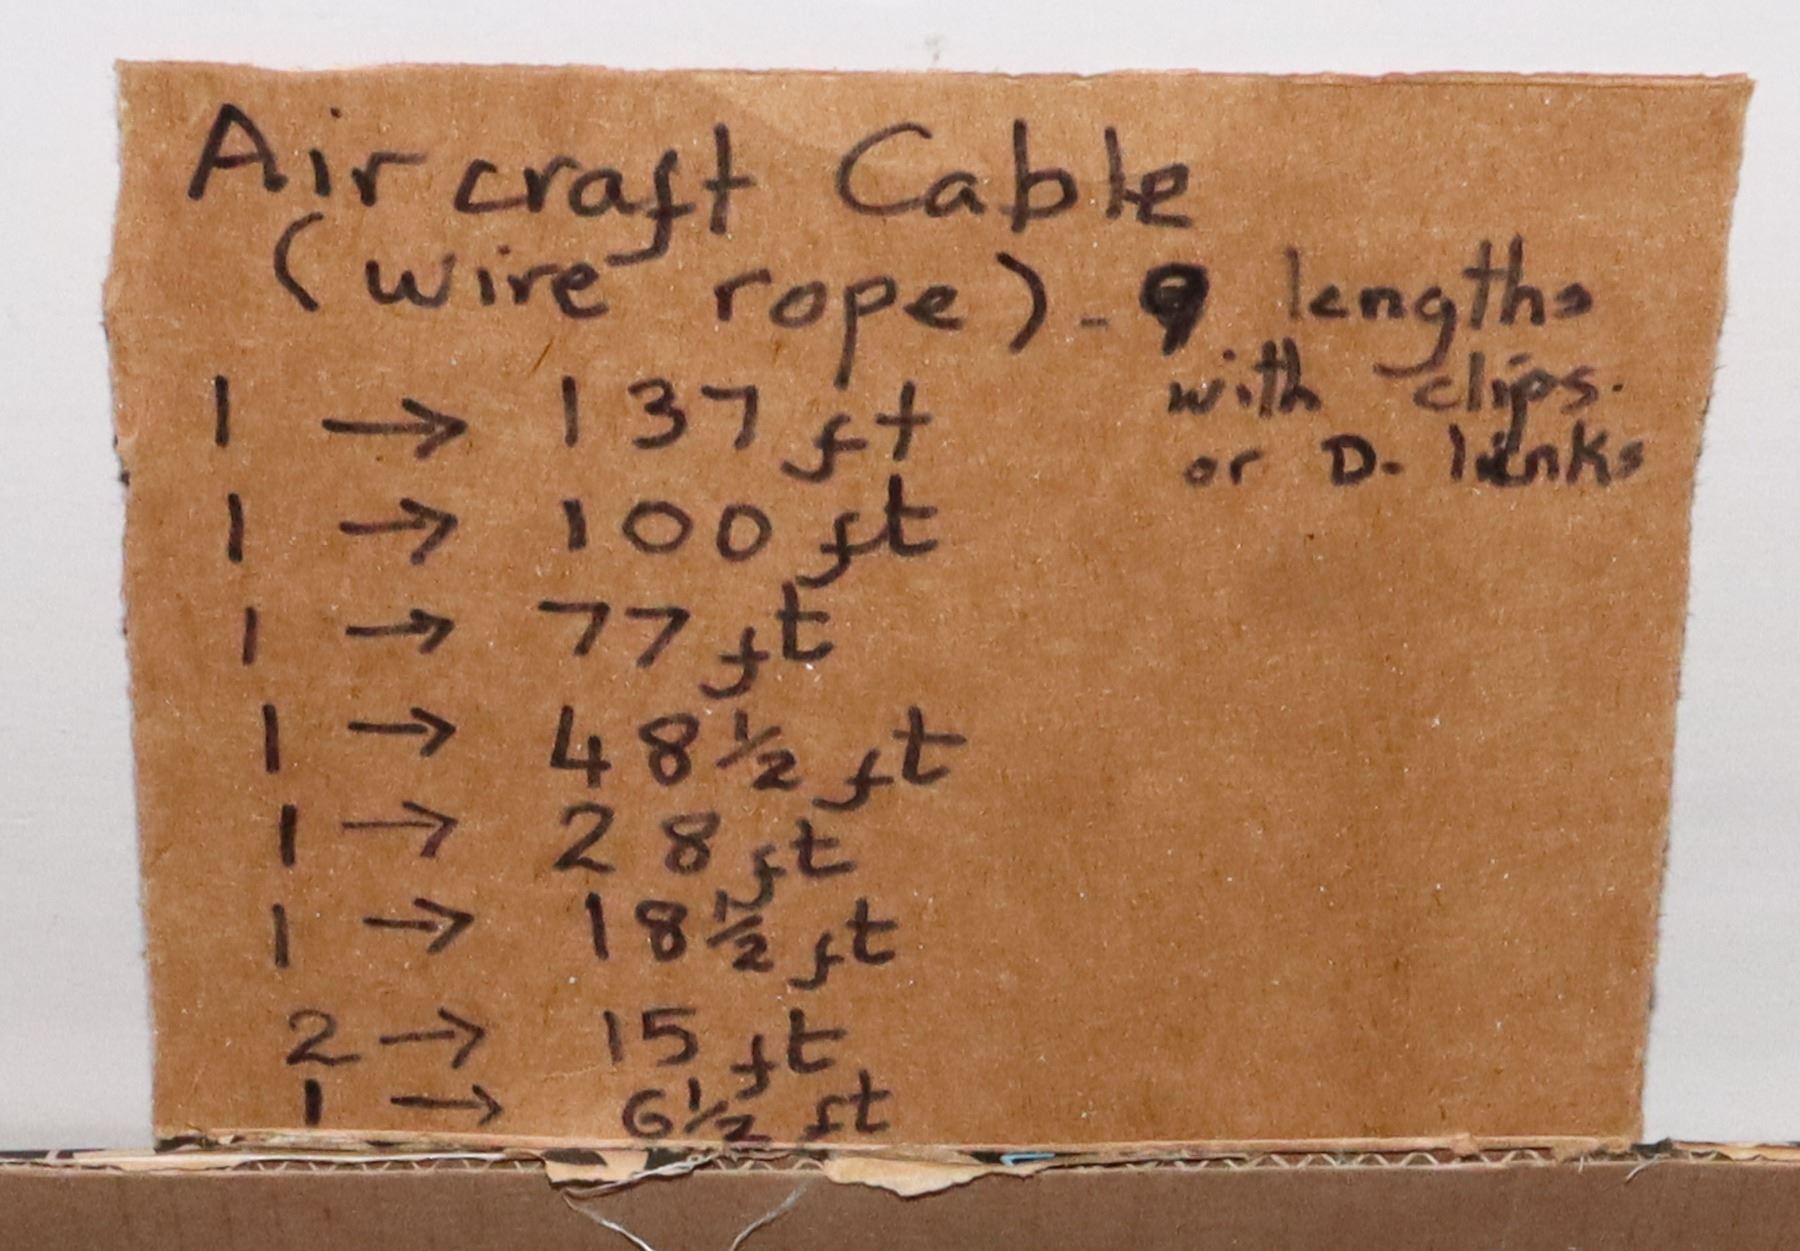 Aircraft Cable
(wire rope) - 9 lengths
with clips.
or D-links
1 → 137 ft
1 → 100 ft
1 → 77 ft
1 → 48 1/2 ft
1 → 28 ft
1 → 18 1/2 ft
2 → 15 ft
1 → 6 1/2 ft